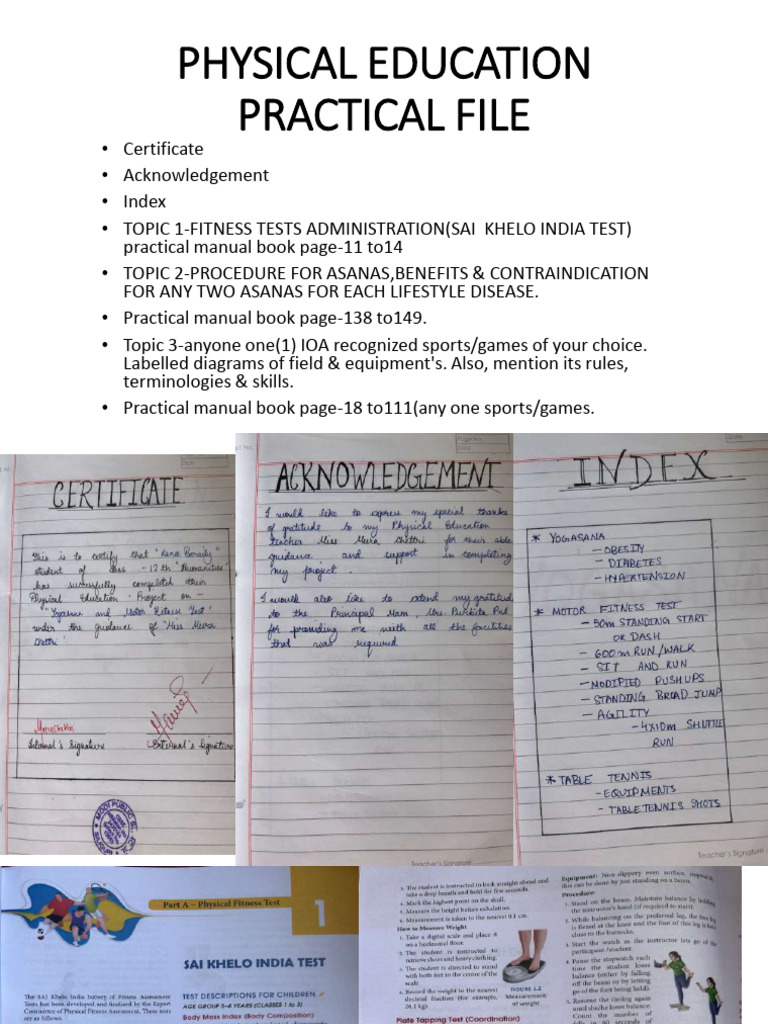 PHYSICAL EDUCATION
PRACTICAL FILE
• Certificate
• Acknowledgement
• Index
• TOPIC 1-FITNESS TESTS ADMINISTRATION(SAI KHELO INDIA TEST)
practical manual book page-11 to14
• TOPIC 2-PROCEDURE FOR ASANAS,BENEFITS & CONTRAINDICATION
FOR ANY TWO ASANAS FOR EACH LIFESTYLE DISEASE.
• Practical manual book page-138 to149.
• Topic 3-anyone one(1) IOA recognized sports/games of your choice.
Labelled diagrams of field & equipment's. Also, mention its rules,
terminologies & skills.
• Practical manual book page-18 to111(any one sports/games.
CERTIFICATE
This is to certify that
student of class - 12th "Humanities"
has successfully completed their
Physical Education Project on -
"Yogasana and Motor Fitness Test"
under the guidance of "Miss Meera
Internal's Signature
External's Signature
ACKNOWLEDGEMENT
I would like to express my special thanks
of gratitude to my Physical Education
teacher Miss Meera for their able
guidance and support in completing
my project.
I would also like to extend my gratitude
to the Principal Mam, Mrs.
for providing me with all the facilities
that was required
Teacher's Signature
INDEX
* YOGASANA
- OBESITY
- DIABETES
- HYPERTENSION
* MOTOR FITNESS TEST
- 50m STANDING START
OR DASH
- 600m RUN/WALK
- SIT AND RUN
- MODIFIED PUSHUPS
- STANDING BROAD JUMP
- AGILITY
- 4x10m SHUTTLE
RUN
* TABLE TENNIS
- EQUIPMENTS
- TABLE TENNIS SHOTS
Teacher's Signature
Part A - Physical Fitness Test
1
SAI KHELO INDIA TEST
The SAI Khelo India battery of Fitness Assessment
Tests has been developed and finalised by the Expert
Committee of Physical Fitness Assessment. These tests
are as follows.
TEST DESCRIPTIONS FOR CHILDREN
AGE GROUP 5-8 YEARS (CLASSES 1 to 3)
Body Mass Index (Body Composition)
3. The student is instructed to look straight ahead and
take a deep breath and hold for few seconds.
4. Mark the highest point on the skull.
5. Measure the height before exhalation.
6. Measurement is taken to the nearest 0.1 cm.
How to Measure Weight
1. Take a digital scale and place it
on a horizontal floor.
2. The student is instructed to
remove shoes and heavy clothing.
3. The student is directed to stand
with both feet in the centre of the
scale.
4. Record the weight to the nearest
decimal fraction (for example,
28.1 kg).
FIGURE 1.2
Measurement
of weight
Plate Tapping Test (Coordination)
Equipment: Non slippery even surface, stopwatch,
this can be done by just standing on a beam.
Procedure:
1. Stand on the beam. Maintain balance by holding
the instructor's hand (if required to start).
2. While balancing on the preferred leg, the free leg
is flexed at the knee and the foot of this leg is held
close to the buttocks.
3. Start the watch as the instructor lets go of the
participant/student.
4. Pause the stopwatch each
time the student loses
balance (either by falling
off the beam or by letting
go of the foot being held).
5. Resume the timing again
until she/he loses balance.
Count the number of
falls in 60 seconds of